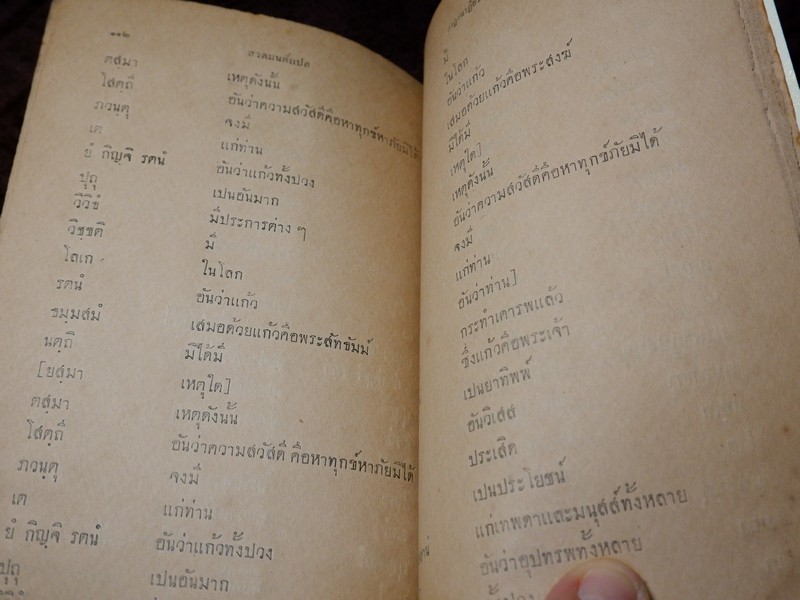 ๑๑๒
สวดมนต์แปล
ตสฺมา เหตุดังนั้น
โสตฺถี อันว่าความสวัสดีคือหาทุกข์หาภัยมิได้
ภวนฺตุ จงมี
เต แก่ท่าน
ยํ กิญฺจิ รตนํ อันว่าแก้วทั้งปวง
ปุถุ เปนอันมาก
วิวิธํ มีประการต่าง ๆ
วิชฺชติ มี
โลเก ในโลก
รตนํ อันว่าแก้ว
ธมฺมสมํ เสมอด้วยแก้วคือพระสัทธัมม์
นตฺถิ มิได้มี
[ยสฺมา เหตุใด]
ตสฺมา เหตุดังนั้น
โสตฺถี อันว่าความสวัสดี คือหาทุกข์หาภัยมิได้
ภวนฺตุ จงมี
เต แก่ท่าน
ยํ กิญฺจิ รตนํ อันว่าแก้วทั้งปวง
ปุถุ เปนอันมาก
มี
ในโลก
อันว่าแก้ว
เสมอด้วยแก้วคือพระสงฆ์
มิได้มี
เหตุใด]
เหตุดังนั้น
อันว่าความสวัสดีคือหาทุกข์ภัยมิได้
จงมี
แก่ท่าน
อันว่าท่าน]
กระทำเคารพแล้ว
ซึ่งแก้วคือพระเจ้า
เปนยาทิพพ์
อันวิเสส
ประเสิด
เปนประโยชน์
แก่เทพดาและมนุสส์ทั้งหลาย
อันว่าอุปัทรพทั้งหลาย